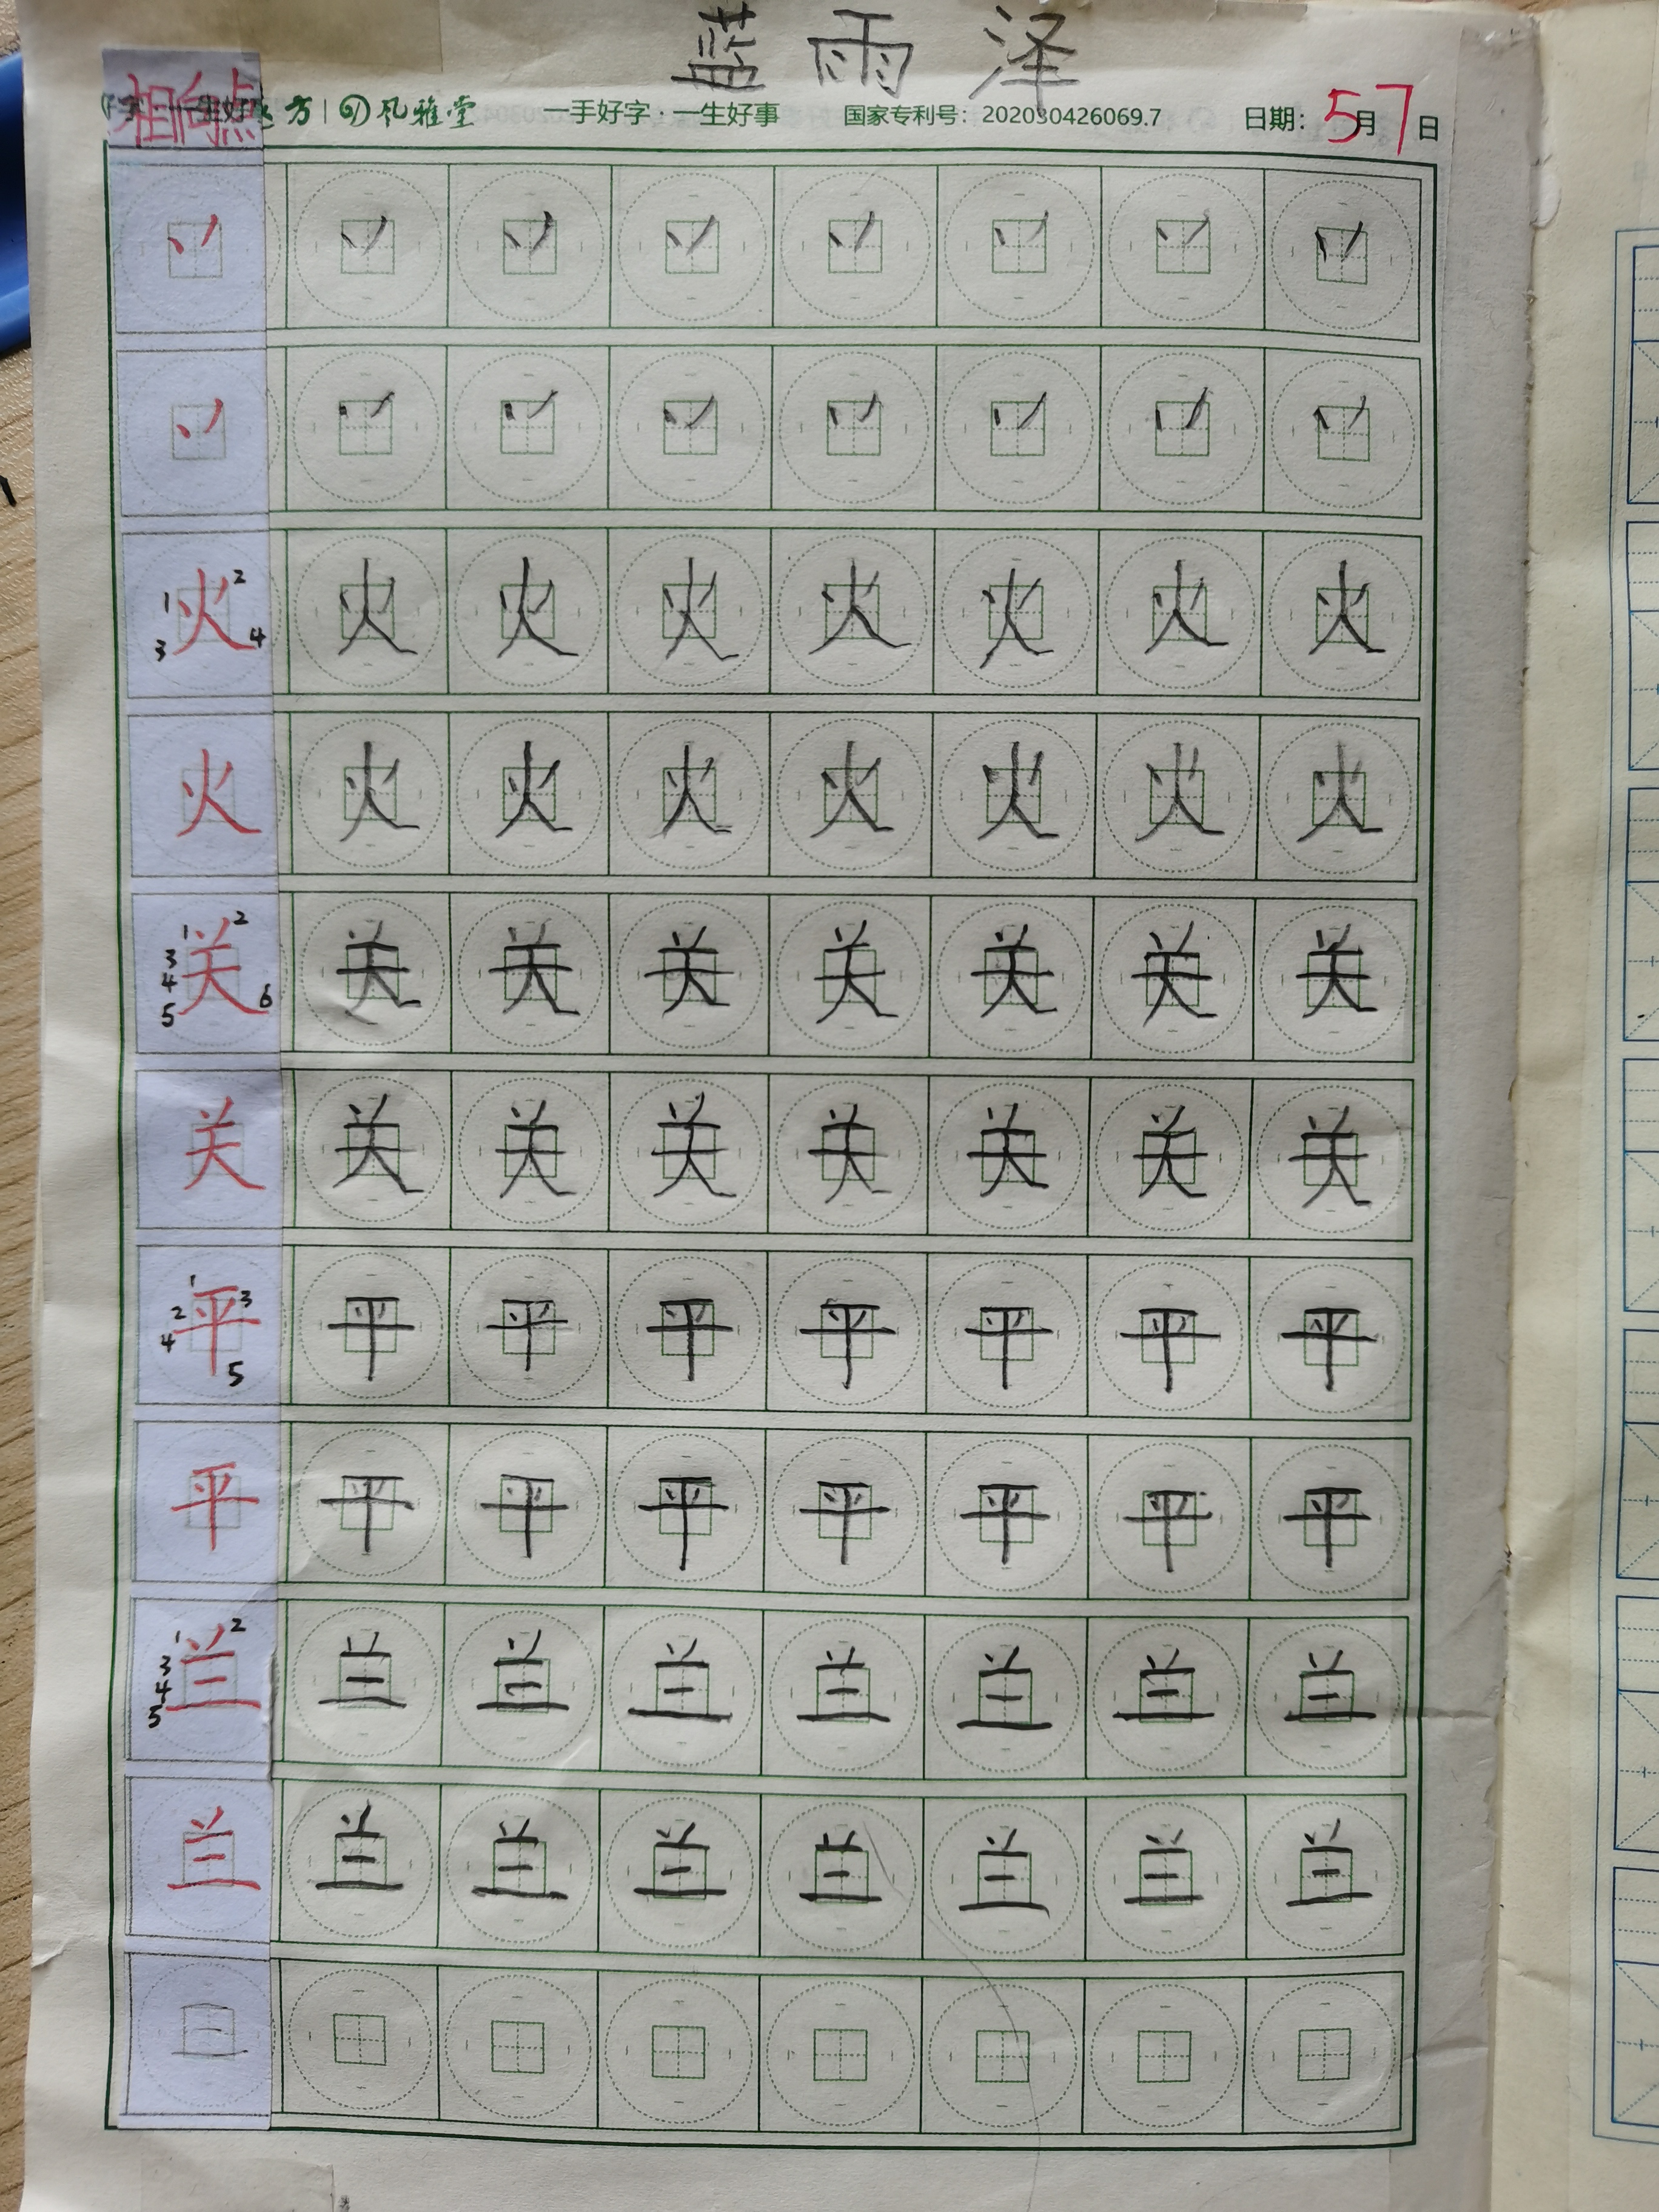 蓝雨泽
相向点 方 | 风雅堂 一手好字·一生好事 国家专利号：202030426069.7 日期：5月7日
丷 丷 丷 丷 丷 丷 丷 丷
丷 丷 丷 丷 丷 丷 丷 丷
1 2 3 4 火 火 火 火 火 火 火 火
火 火 火 火 火 火 火 火
1 2 3 4 5 6 关 关 关 关 关 关 关 关
关 关 关 关 关 关 关 关
1 2 3 4 5 平 平 平 平 平 平 平 平
平 平 平 平 平 平 平 平
1 2 3 4 5 兰 兰 兰 兰 兰 兰 兰 兰
兰 兰 兰 兰 兰 兰 兰 兰